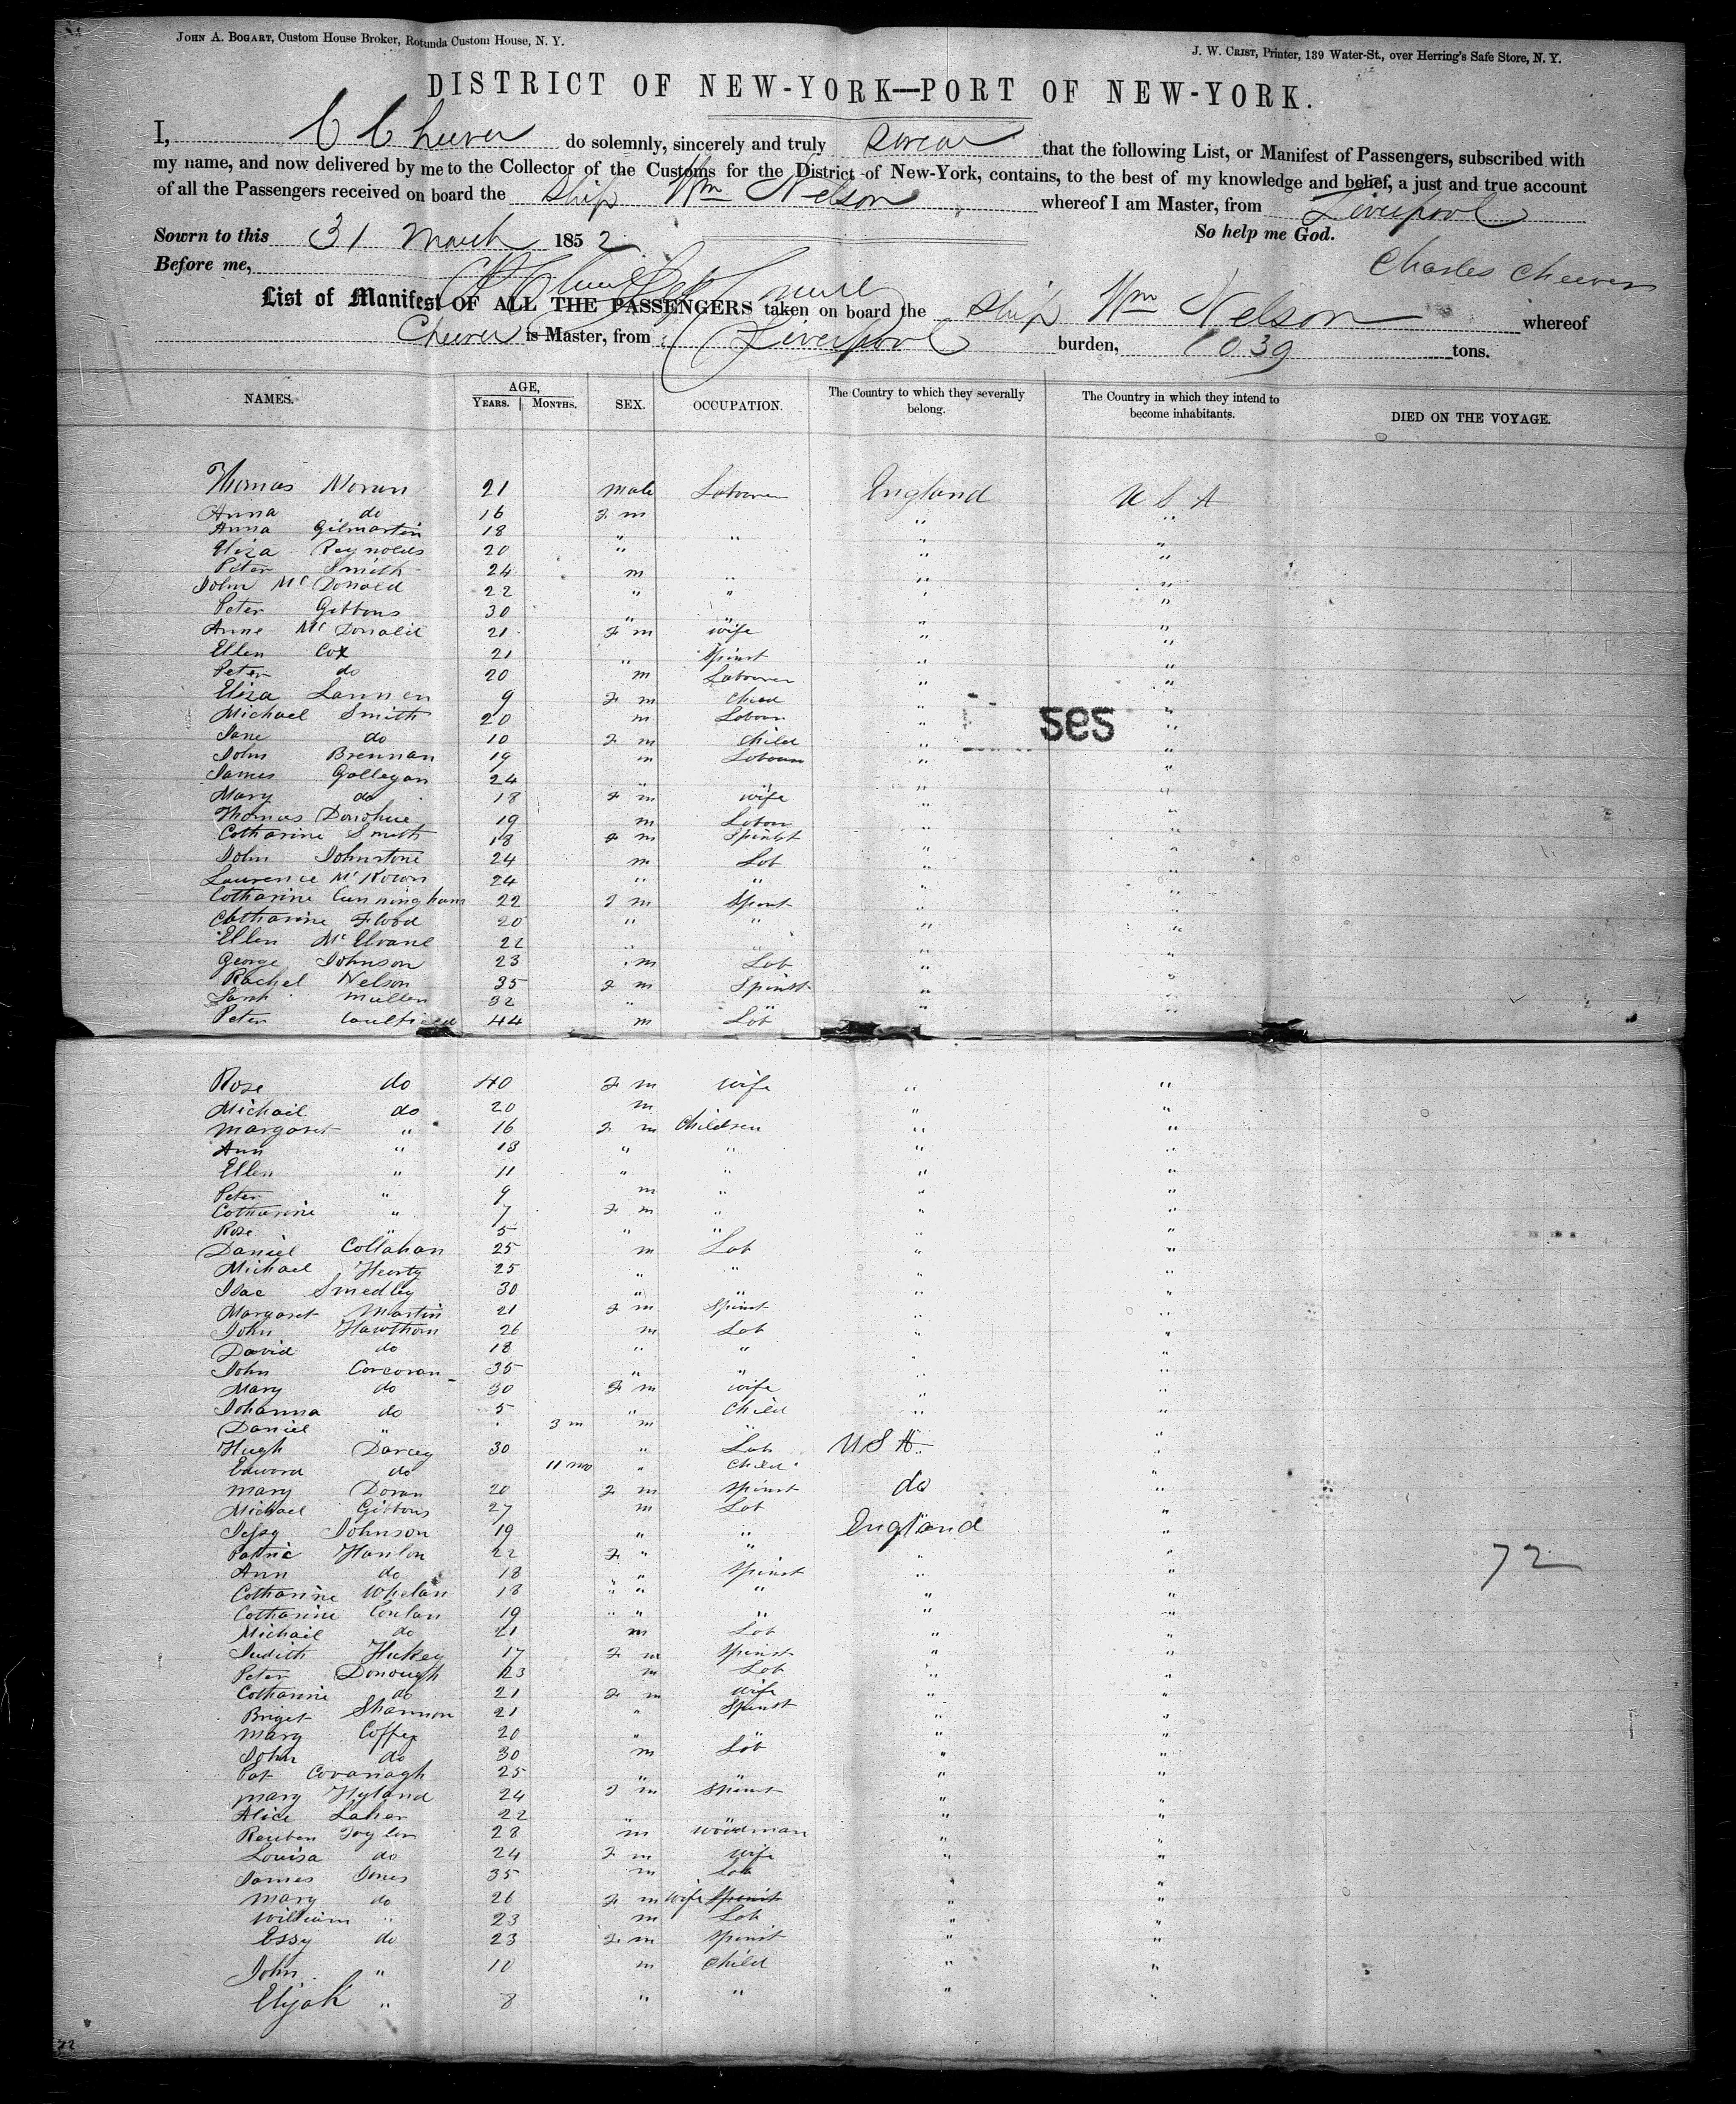 JOHN A. BOGART, Custom House Broker, Rotunda Custom House, N. Y.
J. W. CRIST, Printer, 139 Water-St., over Herring's Safe Store, N. Y.
DISTRICT OF NEW-YORK—PORT OF NEW-YORK.
I, C Cheever do solemnly, sincerely and truly swear that the following List, or Manifest of Passengers, subscribed with
my name, and now delivered by me to the Collector of the Customs for the District of New-York, contains, to the best of my knowledge and belief, a just and true account
of all the Passengers received on board the Ship Wm Nelson whereof I am Master, from Liverpool
Sowrn to this 31 March 1852 So help me God.
Before me, Charles Cheever
List of Manifest OF ALL THE PASSENGERS taken on board the Ship Wm Nelson whereof
Cheever is Master, from Liverpool burden, 1039 tons.
NAMES. AGE, YEARS. MONTHS. SEX. OCCUPATION. The Country to which they severally belong. The Country in which they intend to become inhabitants. DIED ON THE VOYAGE.
Thomas Moran 21 male Labourer England U S A
Anna do 16 F m " "
Anna Gilmartin 18 " " " "
Eliza Reynolds 20 " " "
Peter Smith 24 m " " "
John Mc Donald 22 " " " "
Peter Gibbons 30 " " " "
Anne Mc Donald 21 F m wife " "
Ellen Cox 21 " Spinst " "
Peter do 20 m Labourer " "
Eliza Lannen 9 F m Child " "
Michael Smith 20 m Labour " "
ses
Jane do 10 F m Child " "
John Brennan 19 m Labour " "
James Gallegan 24 " " " "
Mary do 18 F m wife " "
Thomas Donohue 19 m Labour " "
Catharine Smith 18 F m Spinst " "
John Johnstone 24 m Lab " "
Laurence Mc Kown 24 " " " "
Catharine Cunningham 22 F m Spinst " "
Catharine Flood 20 " " " "
Ellen Mc Elvane 22 " " " "
George Johnson 23 m Lab " "
Rachel Nelson 35 F m Spinst " "
Mullen 32 " " " "
Peter Caulfield 44 m Lab
Rose do 40 F m wife " "
Michail do 20 m " "
Margaret " 16 F m Children " "
Ann " 13 " " " "
Ellen " 11 " " " "
Peter " 9 m " " "
Catharine " 7 F m " " "
Rose " 5 " " " "
Daniel Collahan 25 m Lab " "
Michael Hearty 25 " " " "
Isac Smedley 30 " " " "
Margaret Martin 21 F m Spinst " "
John Hawthorn 26 m Lab " "
David do 18 " " " "
John Corcoran 35 " " " "
Mary do 30 F m wife " "
Johanna do 5 " Child " "
Daniel " 3 m m " "
Hugh Darcey 30 " Lab U S A "
Edward do 11 mo " Child "
Mary Doran 20 F m Spinst do "
Michael Gibbons 27 m Lab "
Jessy Johnson 19 " " England "
Patric Hanlon 22 F " " " "
72
Ann do 18 " Spinst " "
Catharine Whelan 18 " " " " "
Catharine Conlan 19 " " " " "
Michail do 21 m Lab " "
Judith Hickey 17 F m Spinst " "
Peter Donough 23 m Lab " "
Catharine do 21 F m wife " "
Briget Shannon 21 " Spinst " "
Mary Coffey 20 " " " "
John do 30 m Lab " "
Pat Cavanagh 25 " " " "
Mary Hyland 24 F m Spinst " "
Alice Laher 22 " " " "
Reuben Taylor 28 m woodman " "
Louisa do 24 F m wife " "
James Jones 35 m Lab "
Mary do 26 F m wife Spinst " "
William " 23 m Lab " "
Essy do 23 F m Spinst " "
John " 10 m Child " "
Elijah " 8 " " " "
72